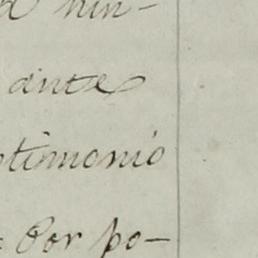 nin-
ante
timonio
por po-